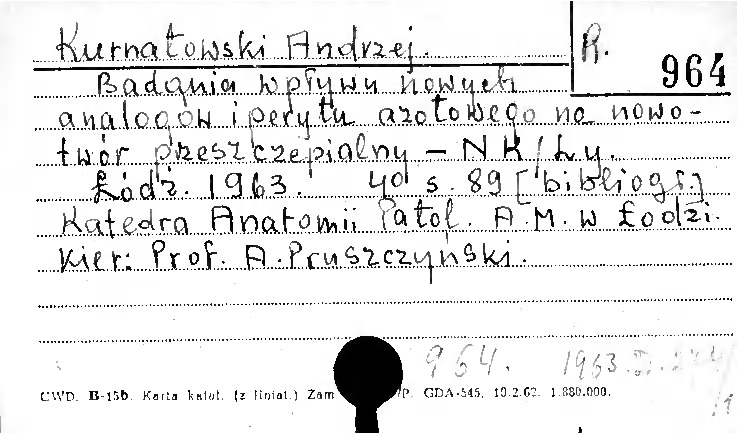 Kurnatowski Andrzej.
R. 964
Badania wpływu nowych
analogów iperytu azotowego na nowo-
twór przeszczepialny – NK/Ly.
Łódź. 1963. 4° s. 89 [bibliogr.]
Katedra Anatomii Patol. A.M. w Łodzi.
Kier: Prof. A. Pruszczyński.
964. 1963.
CWD. B-15b. Karta katal. (z liniat.) Zam GDA-545. 10.2.62. 1.880.000.